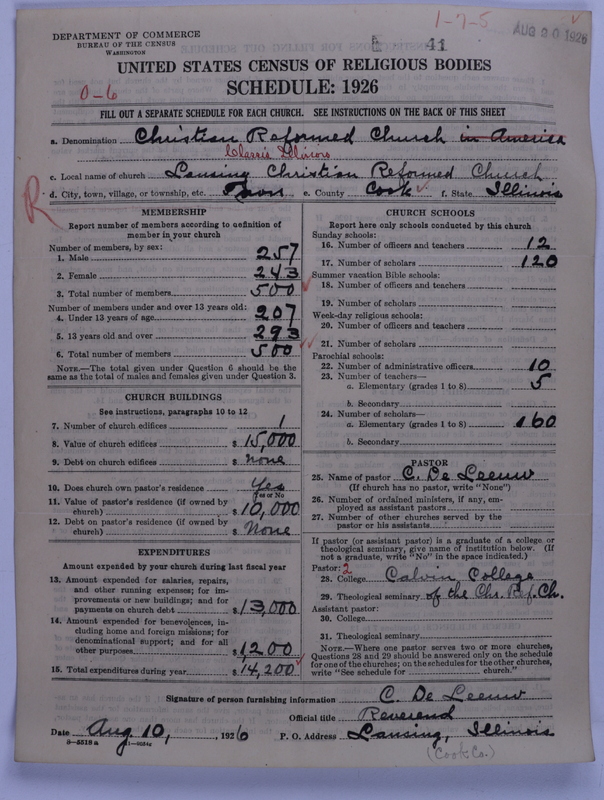 1-7-5
AUG 20 1926
DEPARTMENT OF COMMERCE
BUREAU OF THE CENSUS
WASHINGTON
41
UNITED STATES CENSUS OF RELIGIOUS BODIES
SCHEDULE: 1926
0-6
FILL OUT A SEPARATE SCHEDULE FOR EACH CHURCH. SEE INSTRUCTIONS ON THE BACK OF THIS SHEET
a. Denomination Christian Reformed Church in America
Classis Illinois
c. Local name of church Lansing Christian Reformed Church
d. City, town, village, or township, etc. Town e. County Cook f. State Illinois
R
MEMBERSHIP
Report number of members according to definition of member in your church
Number of members, by sex:
1. Male 257
2. Female 243
3. Total number of members 500
Number of members under and over 13 years old:
4. Under 13 years of age 207
5. 13 years old and over 293
6. Total number of members 500
NOTE.—The total given under Question 6 should be
same as the total of males and females given under Question 3.
CHURCH BUILDINGS
See instructions, paragraphs 10 to 12
7. Number of church edifices 1
8. Value of church edifices $ 15,000
9. Debt on church edifices $ None
10. Does church own pastor's residence Yes
Yes or No
11. Value of pastor's residence (if owned by
church) $ 10,000
12. Debt on pastor's residence (if owned by
church) $ None
EXPENDITURES
Amount expended by your church during last fiscal year
13. Amount expended for salaries, repairs,
and other running expenses; for im-
provements or new buildings; and for
payments on church debt $ 13,000
14. Amount expended for benevolences, in-
cluding home and foreign missions; for
denominational support; and for all
other purposes $ 1,200
15. Total expenditures during year $ 14,200
CHURCH SCHOOLS
Report here only schools conducted by this church
Sunday schools:
16. Number of officers and teachers 12
17. Number of scholars 120
Summer vacation Bible schools:
18. Number of officers and teachers
19. Number of scholars
Week-day religious schools:
20. Number of officers and teachers
21. Number of scholars
Parochial schools:
22. Number of administrative officers 10
23. Number of teachers—
a. Elementary (grades 1 to 8) 5
b. Secondary
24. Number of scholars—
a. Elementary (grades 1 to 8) 160
b. Secondary
PASTOR
25. Name of pastor C. De Leeuw
(If church has no pastor, write "None")
26. Number of ordained ministers, if any, em-
ployed as assistant pastors
27. Number of other churches served by the
pastor or his assistants
If pastor (or assistant pastor) is a graduate of a college or
theological seminary, give name of institution below. (If
not a graduate, write "No" in the space indicated.)
Pastor: 2
28. College Calvin College
29. Theological seminary of the Chr. Ref. Ch.
Assistant pastor:
30. College
31. Theological seminary
NOTE.—Where one pastor serves two or more churches,
Questions 28 and 29 should be answered only on the schedule
for one of the churches; on the schedules for the other churches,
write "See schedule for church."
Signature of person furnishing information C. De Leeuw
Official title Reverend
Date Aug 10, 1926 P. O. Address Lansing, Illinois
(Cook Co.)